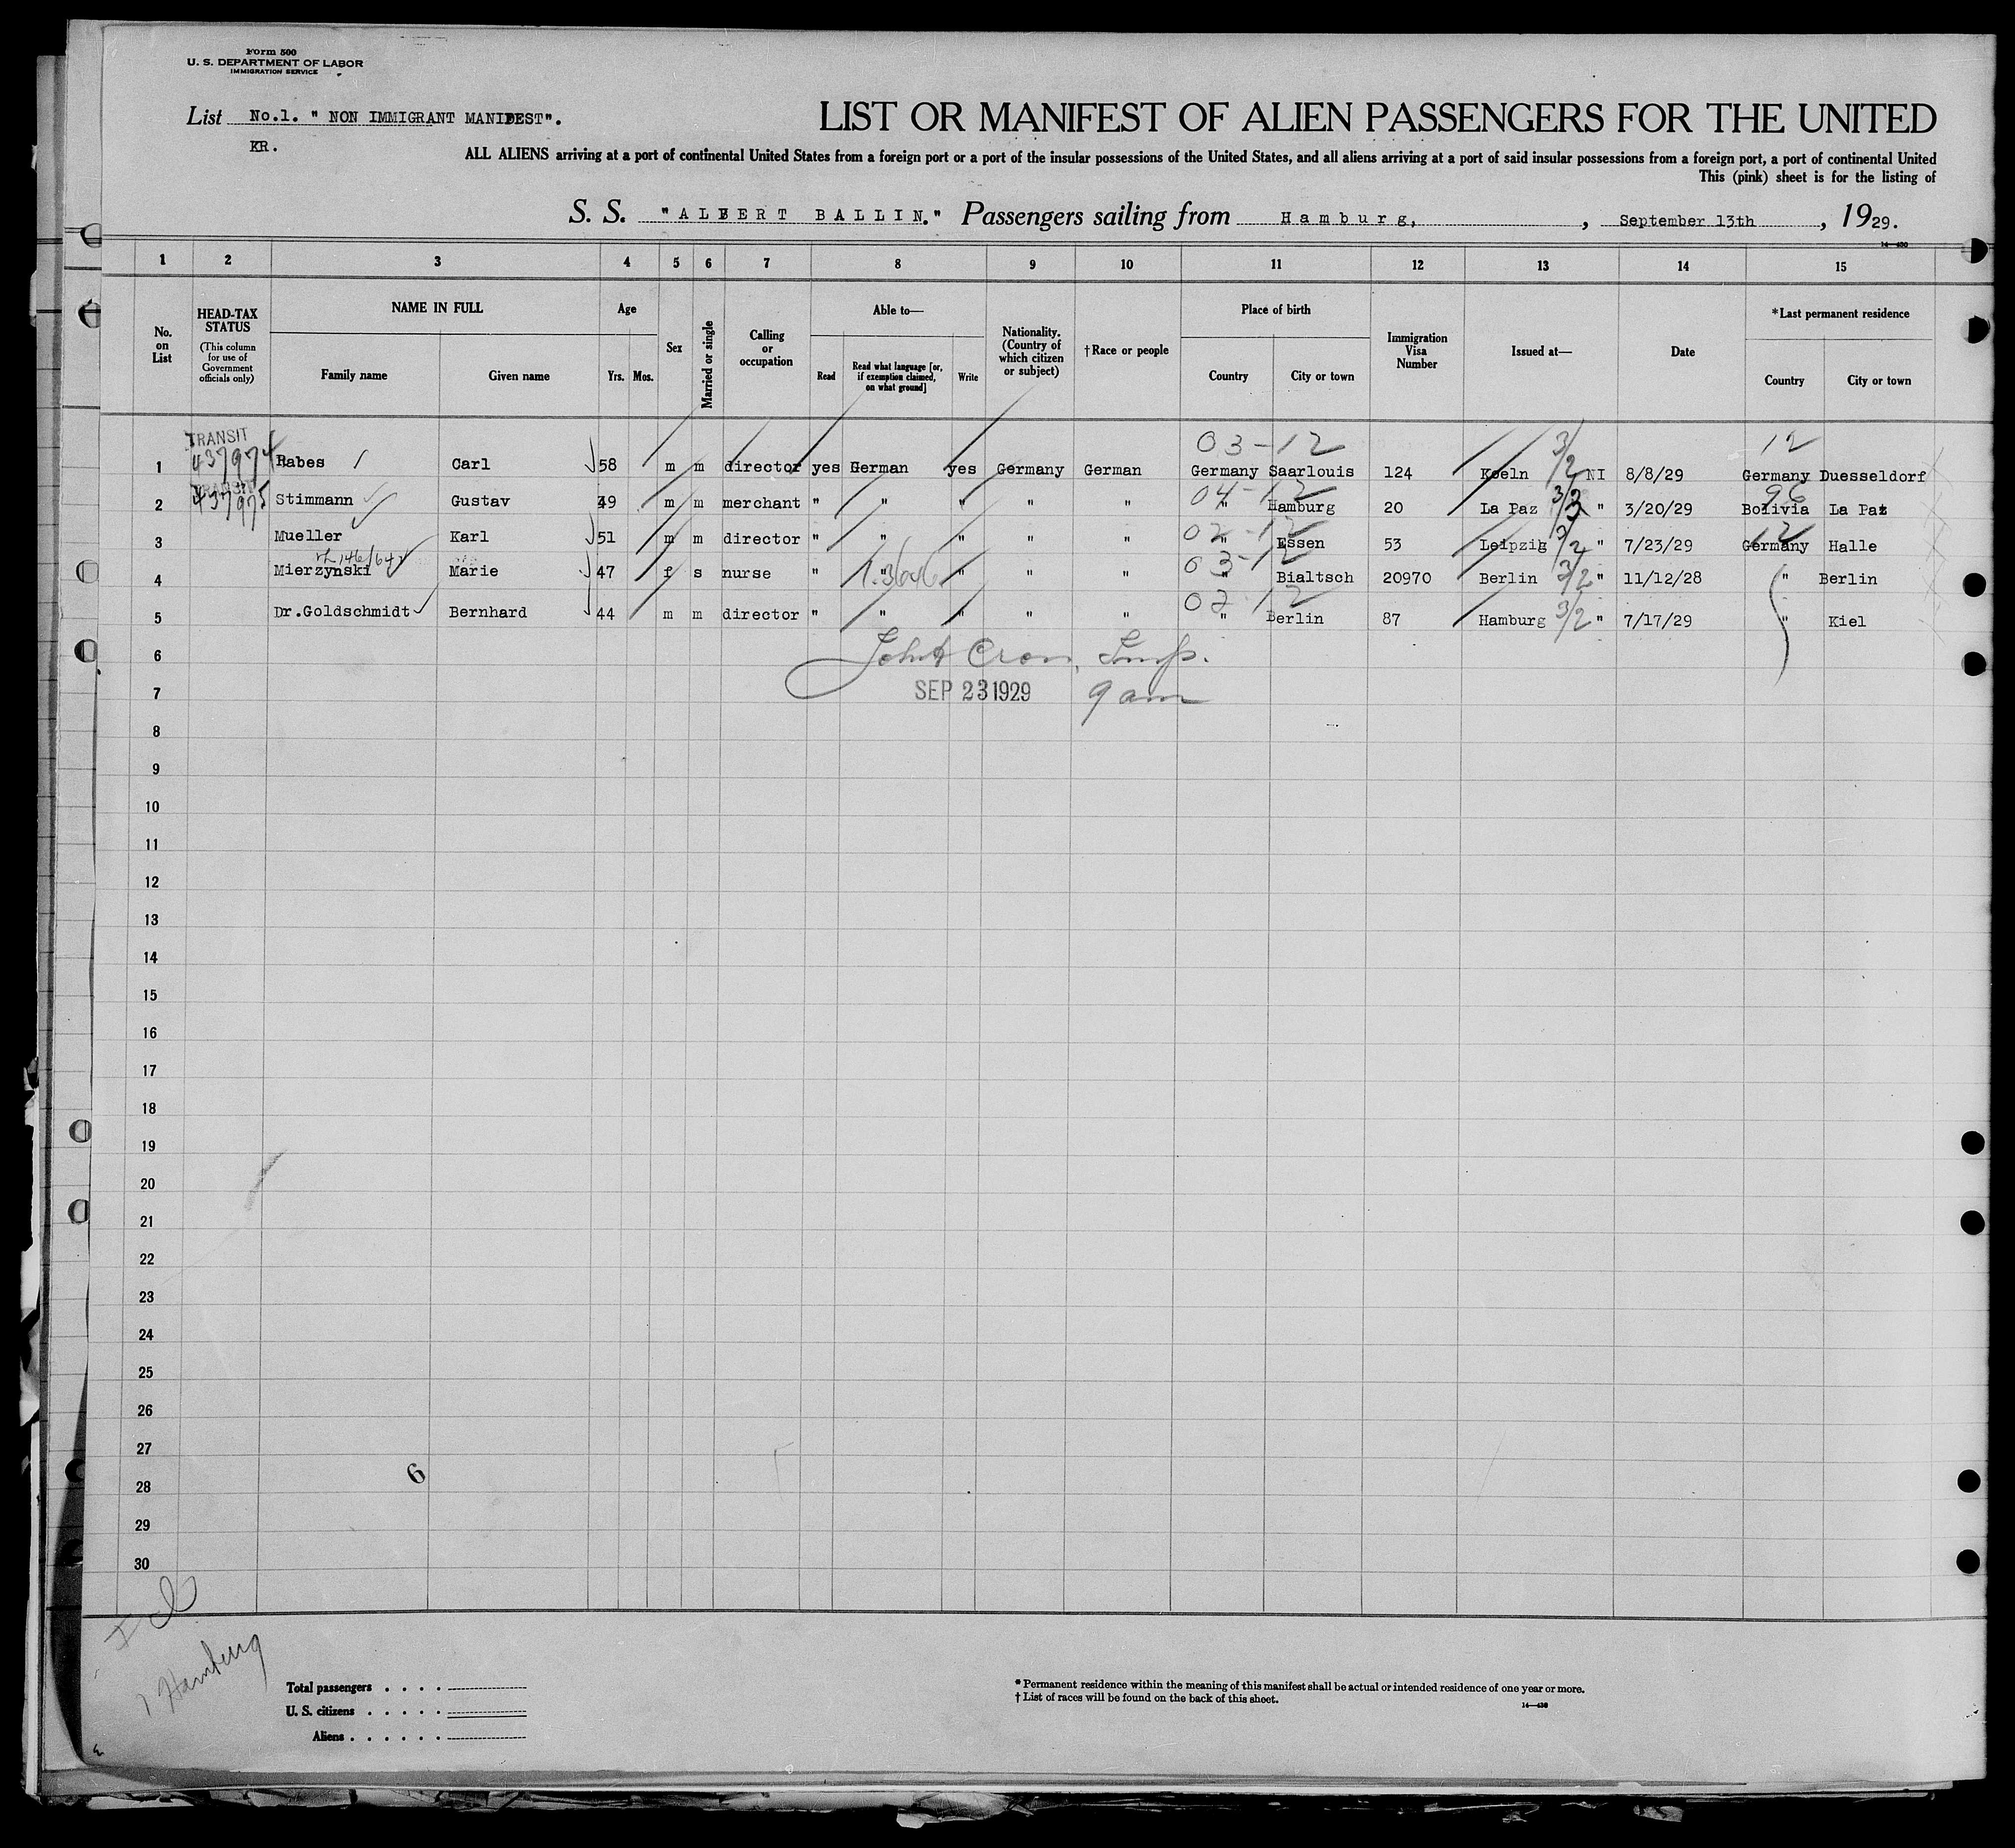 Form 500
U. S. DEPARTMENT OF LABOR
IMMIGRATION SERVICE
List No.1. " NON IMMIGRANT MANIFEST".
KR.
LIST OR MANIFEST OF ALIEN PASSENGERS FOR THE UNITED
ALL ALIENS arriving at a port of continental United States from a foreign port or a port of the insular possessions of the United States, and all aliens arriving at a port of said insular possessions from a foreign port, a port of continental United
This (pink) sheet is for the listing of
S. S. "ALBERT BALLIN." Passengers sailing from Hamburg, , September 13th , 1929.
1 2 3 4 5 6 7 8 9 10 11 12 13 14 15
No. on List
HEAD-TAX STATUS (This column for use of Government officials only)
NAME IN FULL
Family name Given name
Age
Yrs. Mos.
Sex
Married or single
Calling or occupation
Able to—
Read
Read what language [or, if exemption claimed, on what ground]
Write
Nationality. (Country of which citizen or subject)
†Race or people
Place of birth
Country City or town
Immigration Visa Number
Issued at—
Date
*Last permanent residence
Country City or town
TRANSIT 03-12 3/2 12
1 437974 Rabes Carl 58 m m director yes German yes Germany German Germany Saarlouis 124 Koeln NI 8/8/29 Germany Duesseldorf
TRANSIT 04-12 3/3 96
2 437975 Stimmann Gustav 49 m m merchant " " " " " " Hamburg 20 La Paz " 3/20/29 Bolivia La Paz
02-12 3/2 12
3 Mueller Karl 51 m m director " " " " " " Essen 53 Leipzig " 7/23/29 Germany Halle
03-12 3/2
4 Mierzynski Marie 47 f s nurse " " " " " " Bialtsch 20970 Berlin " 11/12/28 " Berlin
02-12 3/2
5 Dr.Goldschmidt Bernhard 44 m m director " " " " " " Berlin 87 Hamburg " 7/17/29 " Kiel
6 Cron, Insp.
7 SEP 23 1929 9 am
8
9
10
11
12
13
14
15
16
17
18
19
20
21
22
23
24
25
26
27
28 6
29
30
1 Hamburg
Total passengers
U. S. citizens
Aliens
* Permanent residence within the meaning of this manifest shall be actual or intended residence of one year or more.
† List of races will be found on the back of this sheet.
14—430